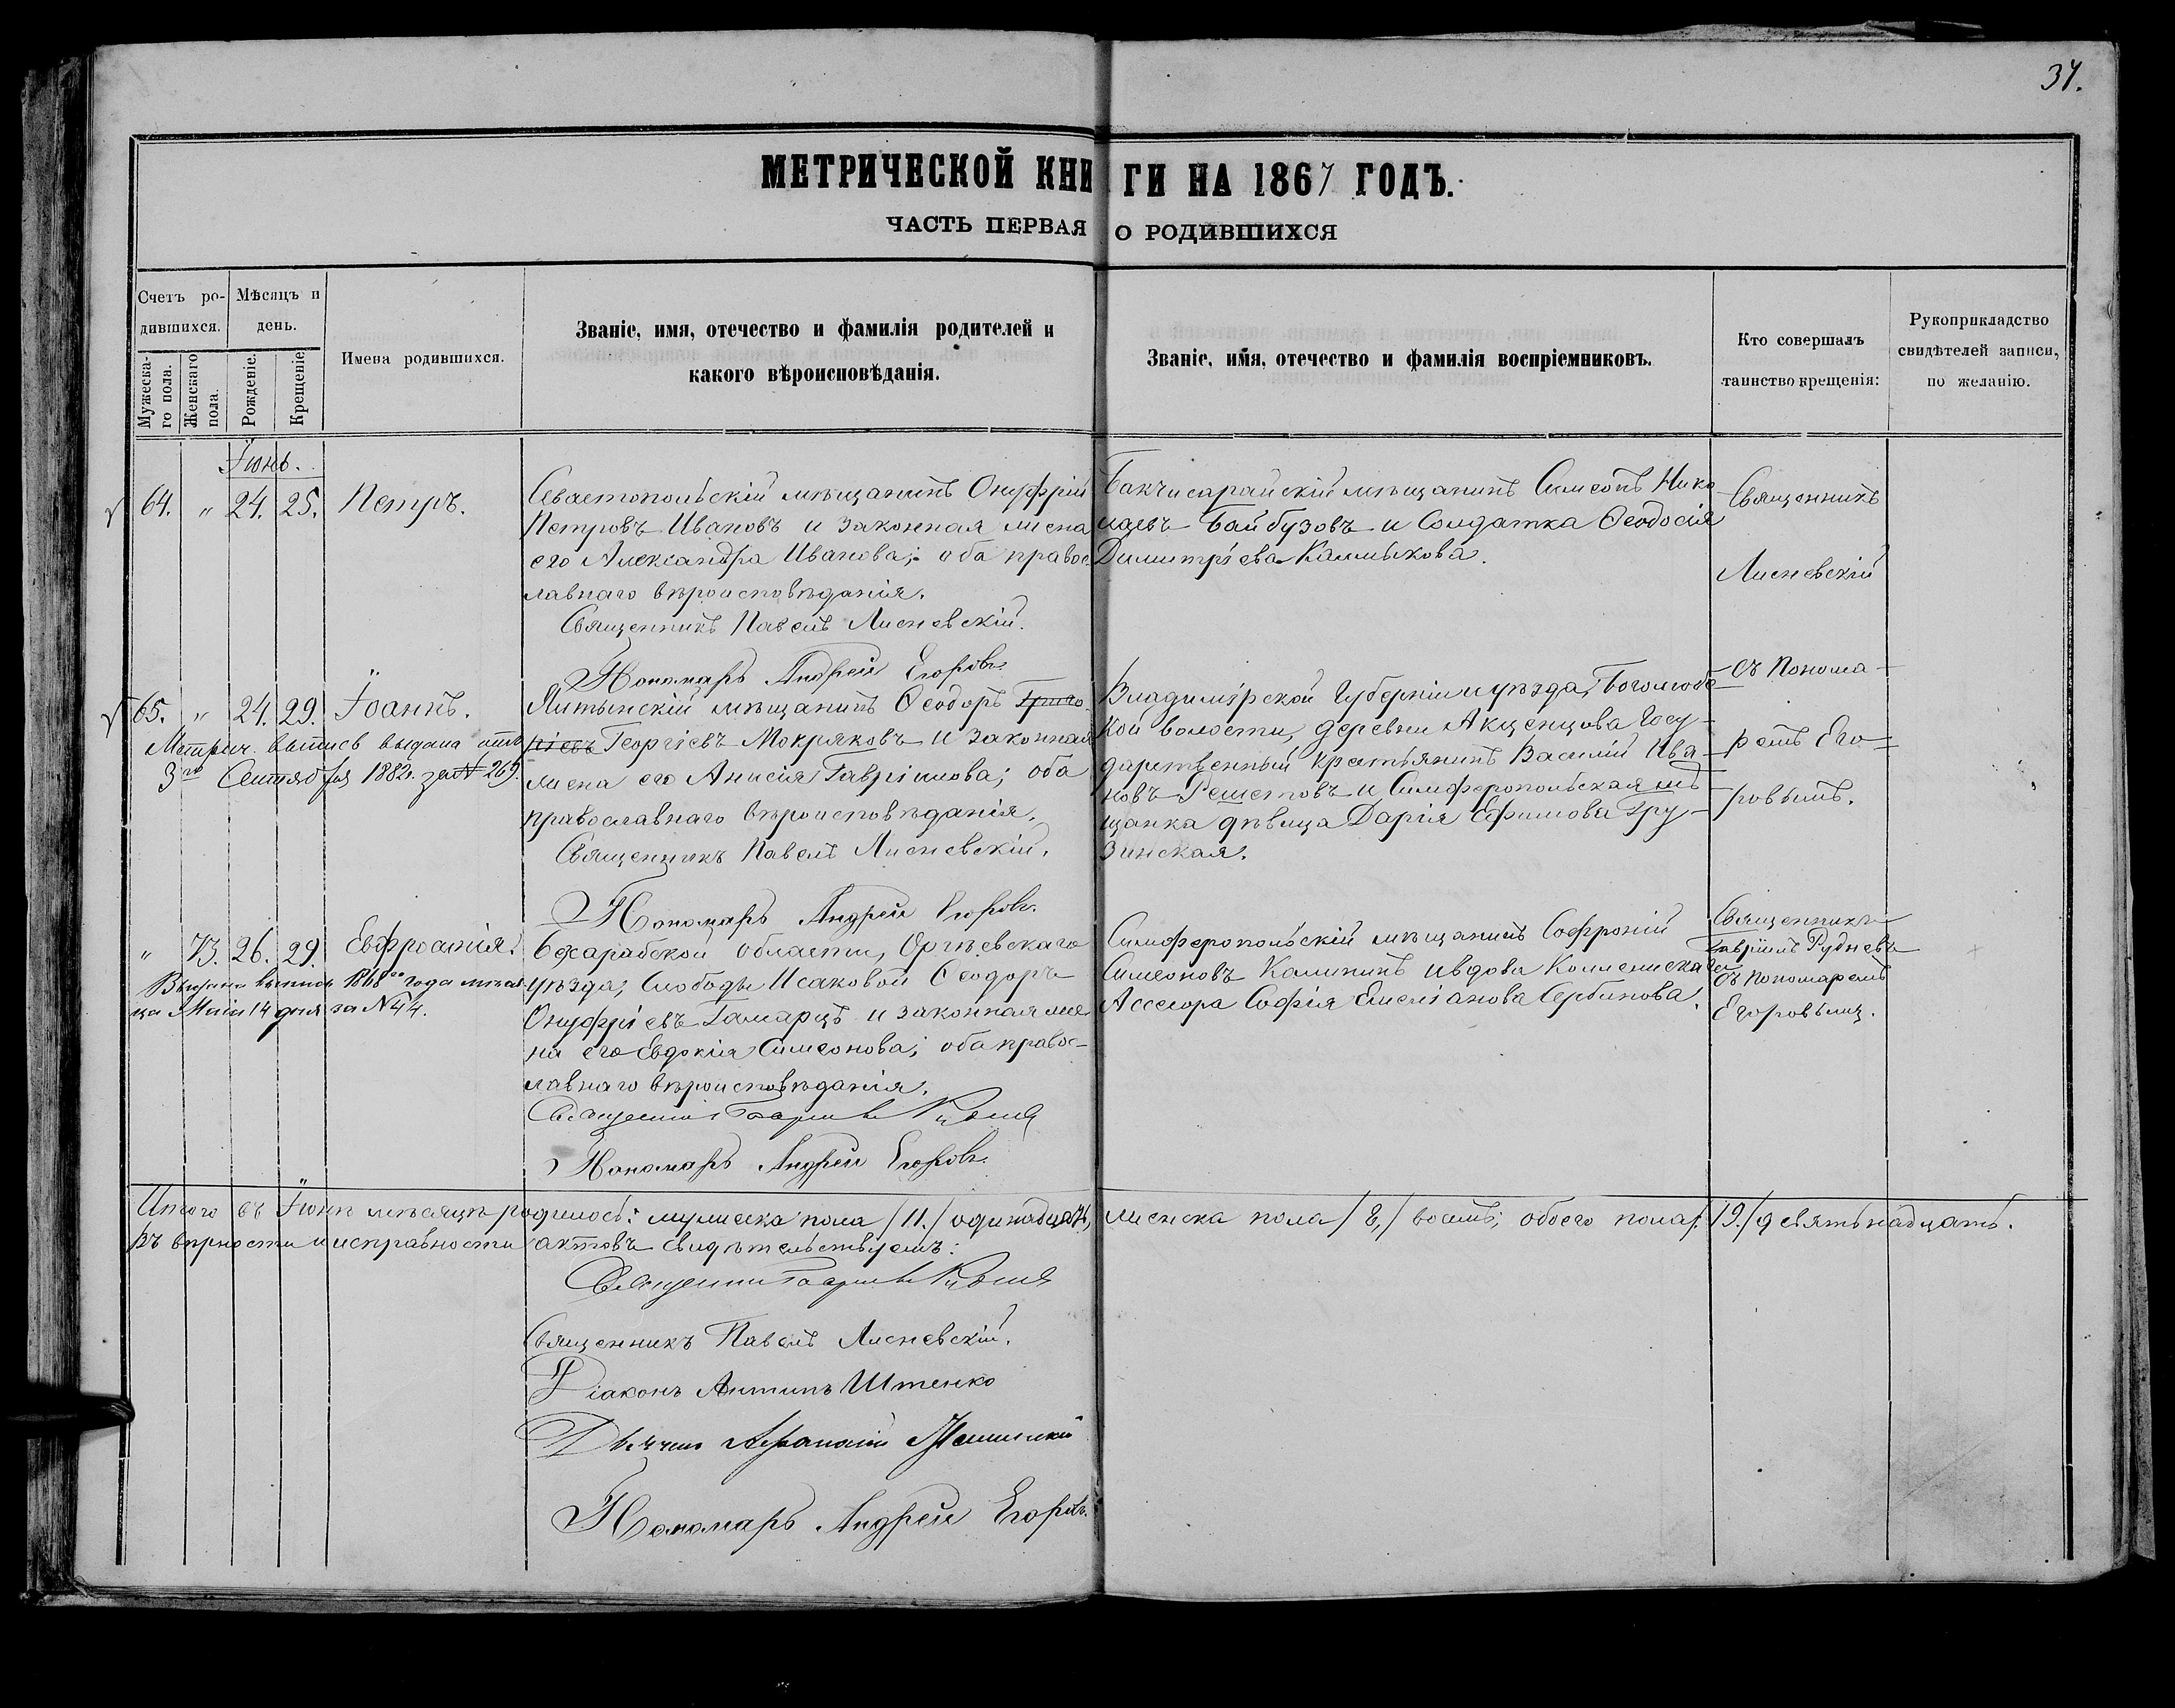 37.
МЕТРИЧЕСКОЙ КНИГИ НА 1867 ГОДЪ.
ЧАСТЬ ПЕРВАЯ О РОДИВШИХСЯ
Счетъ ро-
дившихся.
Мужеска-
го пола.
Женскаго
пола.
Мѣсяцъ и
день.
Рожденіе.
Крещеніе.
Имена родившихся.
Званіе, имя, отечество и фамилія родителей и
какого вѣроисповѣданія.
Званіе, имя, отечество и фамилія воспріемниковъ.
Кто совершалъ
таинство крещенія:
Рукоприкладство
свидѣтелей записи,
по желанію.
Іюнь.
64. " 24. 25. Петръ.
Севастопольскій мѣщанинъ Онуфрій
Петровъ Ивановъ и законная жена
его Александра Иванова; оба правос-
лавнаго вѣроисповѣданія.
Священникъ Павелъ Лисневскій.
Пономарь Андрей Егоровъ.
Бакчисарайскій мѣщанинъ Симеонъ Нико
лаевъ Байбузовъ и Солдатка Ѳеодосія
Димитріева Калмыкова.
Священникъ
Лисневскій
съ Понома-
ремъ Его-
ровымъ.
65. " 24. 29. Іоаннъ.
Метрич. выпись выдана
3го Сентября 1882 г. за № 269.
Ялтынскій мѣщанинъ Ѳеодоръ Григо
ріевъ Георгіевъ Мокряковъ и законная
жена его Анисія Гавріилова; оба
православнаго вѣроисповѣданія.
Священникъ Павелъ Лисневскій.
Пономарь Андрей Егоровъ.
Владимірской Губерніи и уѣзда, Боголюбс
кой волости, деревни Акценцова Госу-
дарственный крестьянинъ Василій Ива-
новъ Решетовъ и Симферопольская мѣ
щанка дѣвица Дарія Ефимова Гру-
зинская.
" 73. 26. 29. Евфросинія.
Выдана выпись 1868го года мѣся-
ца Маія 14 дня за № 44.
Бессарабской области, Оргѣевскаго
уѣзда, Слободы Исаковой Ѳеодоръ
Онуфріевъ Гамарцъ и законная же-
на его Евдокія Симеонова; оба правос-
лавнаго вѣроисповѣданія.
Священникъ Гавріилъ Рудневъ
Пономарь Андрей Егоровъ.
Симферопольскій мѣщанинъ Софроній
Симеоновъ Калининъ и вдова Коллежскаго
Ассесора Софія Емеліанова Сербинова.
Священникъ
Гавріилъ Рудневъ
съ пономаремъ
Егоровымъ.
Итого въ Іюнѣ мѣсяцѣ родилось: мужеска пола /11./ одинадцать, женска пола /8./ восемь; обоего пола /19./ девятьнадцать.
Въ вѣрности и исправности актовъ свидѣтельствуемъ:
Священникъ Гавріилъ Рудневъ
Священникъ Павелъ Лисневскій.
Діаконъ Антипъ Штенко
Дьячекъ Афанасій
Пономарь Андрей Егоровъ.